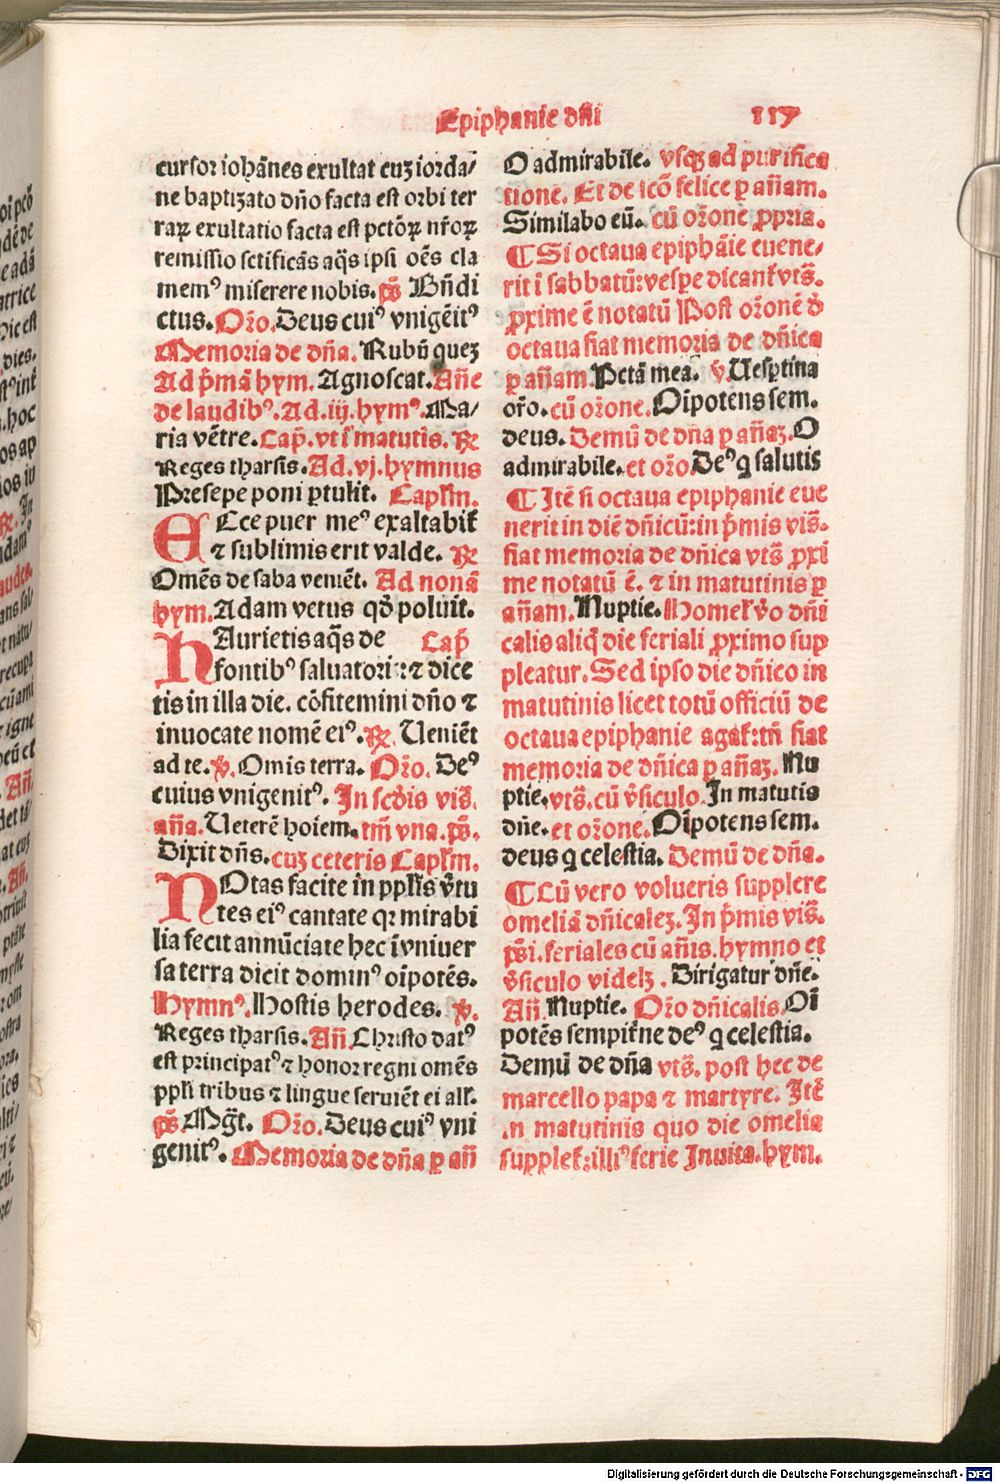 Epiphanie dñi 117
cursor iohānes exultat cuꝫ iorda/
ne baptizato dño facta est orbi ter
raꝝ exultatio facta est pctōꝝ nr̄oꝝ
remissio sctificās aq̄s ipsi oēs cla
memꝰ miserere nobis. ps̄ Bn̄di
ctus. Oro. Deus cuiꝰ vnigēitꝰ
Memoria de dña. Rubū queꝫ
Ad p̄mā hym. Agnoscat. Añe
de laudibꝰ. Ad. iij. hymꝰ. Ma/
ria vētre. Cap̄. vt ī matutis. ꝶ
Reges tharsis. Ad. vj. hymnus
Presepe poni ꝑtulit. Capl̄m.
ECce puer meꝰ exaltabit̄
⁊ sublimis erit valde. ꝶ
Omēs de saba veniēt. Ad nonā
hym. Adam vetus qd̄ poluit.
HAurietis aq̄s de Cap̄
fontibꝰ saluatoris: ⁊ dice
tis in illa die. cōfitemini dño ⁊
inuocate nomē eiꝰ. ꝶ. Ueniēt
ad te. ꝟ. Omis terra. Oro. Deꝰ
cuius vnigenitꝰ. In scd̄is vis̄.
aña. Ueterē hoiem. tm̄ vna. ps̄.
Dixit dñs. cuꝫ ceteris Capl̄m.
NOtas facite in ppl̄is v̄tu
tes eiꝰ cantate qꝛ mirabi
lia fecit annūciate hec ī vniuer
sa terra dicit dominꝰ oīpotēs.
Hymnꝰ. Hostis herodes. ꝟ.
Reges tharsis. Añ Christo datꝰ
est principatꝰ ⁊ honor regni omēs
ppl̄i tribus ⁊ lingue seruiēt ei all̄.
ps̄ Mḡt. Oro. Deus cuiꝰ vni
genitꝰ. Memoria de dña ꝑ añ
O admirabile. vsqꝫ ad purifica
tione. Et de scō felice ꝑ añam.
Similabo eū. cū orōne ꝓpria.
¶ Si octaua epiphāie euene/
rit ī sabbatū: vespe dicant̄ vts̄.
ꝓxime ē notatū Post orōnē d̄
octaua fiat memoria de dñica
ꝑ añam Pctā mea. ꝟ. Uesꝑtina
or̄o. cū orōne. Oīpotens sem.
deus. Demū de dña ꝑ añaꝫ. O
admirabile. et orō. Deꝰ q̄ salutis
¶ Itē si octaua epiphanie eue
nerit in diē dñicū: in p̄mis vis̄.
fiat memoria de dñica vts̄ ꝓxi
me notatū ē. ⁊ in matutinis ꝑ
añam. Nuptie. Home v̄o dñi
calis aliq̄ die feriali ꝓximo sup
pleatur. Sed ipso die dñico in
matutinis licet totū officiū de
octaua epiphanie agat̄: tñ fiat
memoria de dñica ꝑ añaꝫ. Nu
ptie. vts̄. cū v̄siculo. In matutis
dñe. et orōne. Oīpotens sem.
deus q̄ celestia. Demū de dña.
¶ Cū vero volueris supplere
omeliā dñicaleꝫ. In p̄mis vis̄.
ps̄i. feriales cū añis. hymno et
v̄siculo videlꝫ. Dirigatur dñe.
Añ. Nuptie. Orō dñicalis. Oī
potēs sempit̄ne deꝰ q̄ celestia.
Demū de dña vts̄. post hec de
marcello papa ⁊ martyre. Itē
in matutinis quo die omelia
supplet̄: illiꝰ ferie Inuita. hym.
Digitalisierung gefördert durch die Deutsche Forschungsgemeinschaft - DFG